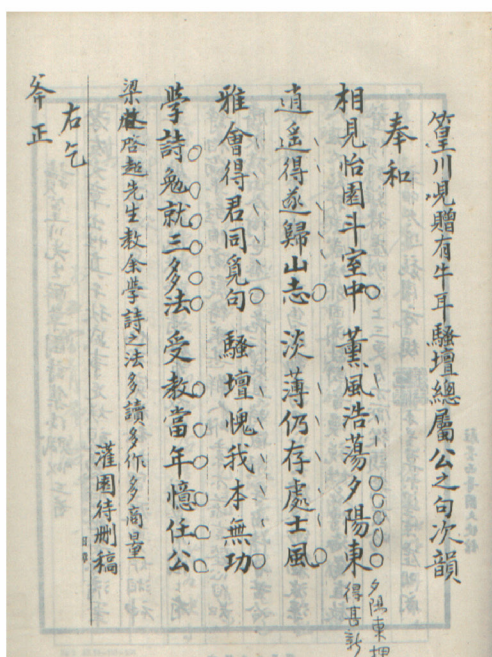 篁川見贈有牛耳騷壇總屬公之句次韻
奉和
相見怡園斗室中 薰風浩蕩夕陽東
夕陽東押得甚新
逍遥得遂歸山志 淡薄仍存處士風
雅會得君同覓句 騷壇愧我本無功
學詩勉就三多法 受教當年憶任公
梁啓超先生教余學詩之法多讀多作多商量
灌園待刪稿
右乞
斧正